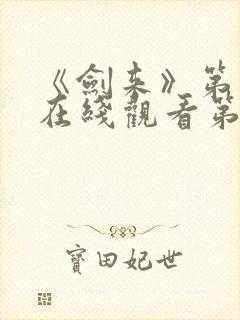 《劍来》第
在綫觀看第
寳田妃世